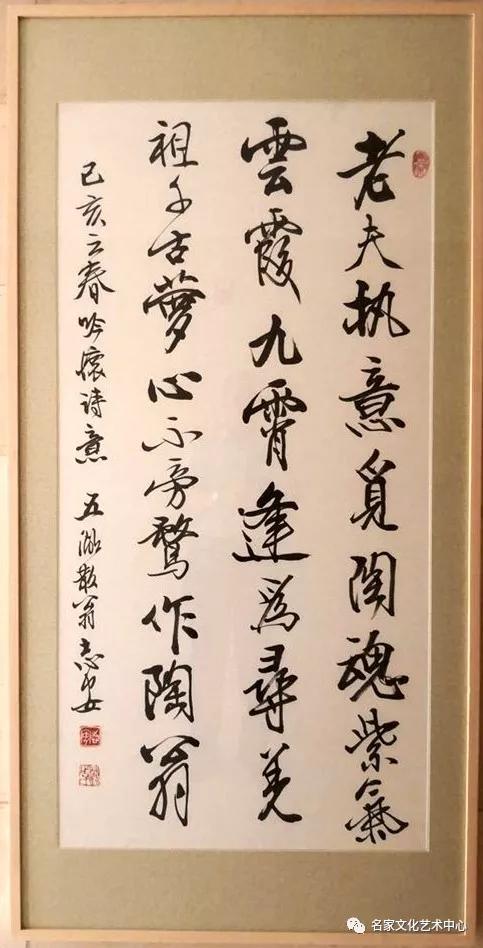 老夫执意觅陶魂紫氣
雲霞九霄逢為尋羌
祖千古夢心不旁鶩作陶翁
己亥之春吟懷詩意 五湖散翁志安
名家文化艺术中心